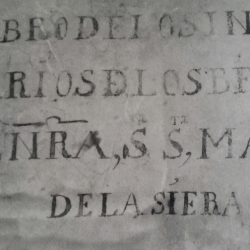 BRO DE LOS IN
RIOS D LOS B
NRA, S. S, MA
DE LA SIERA